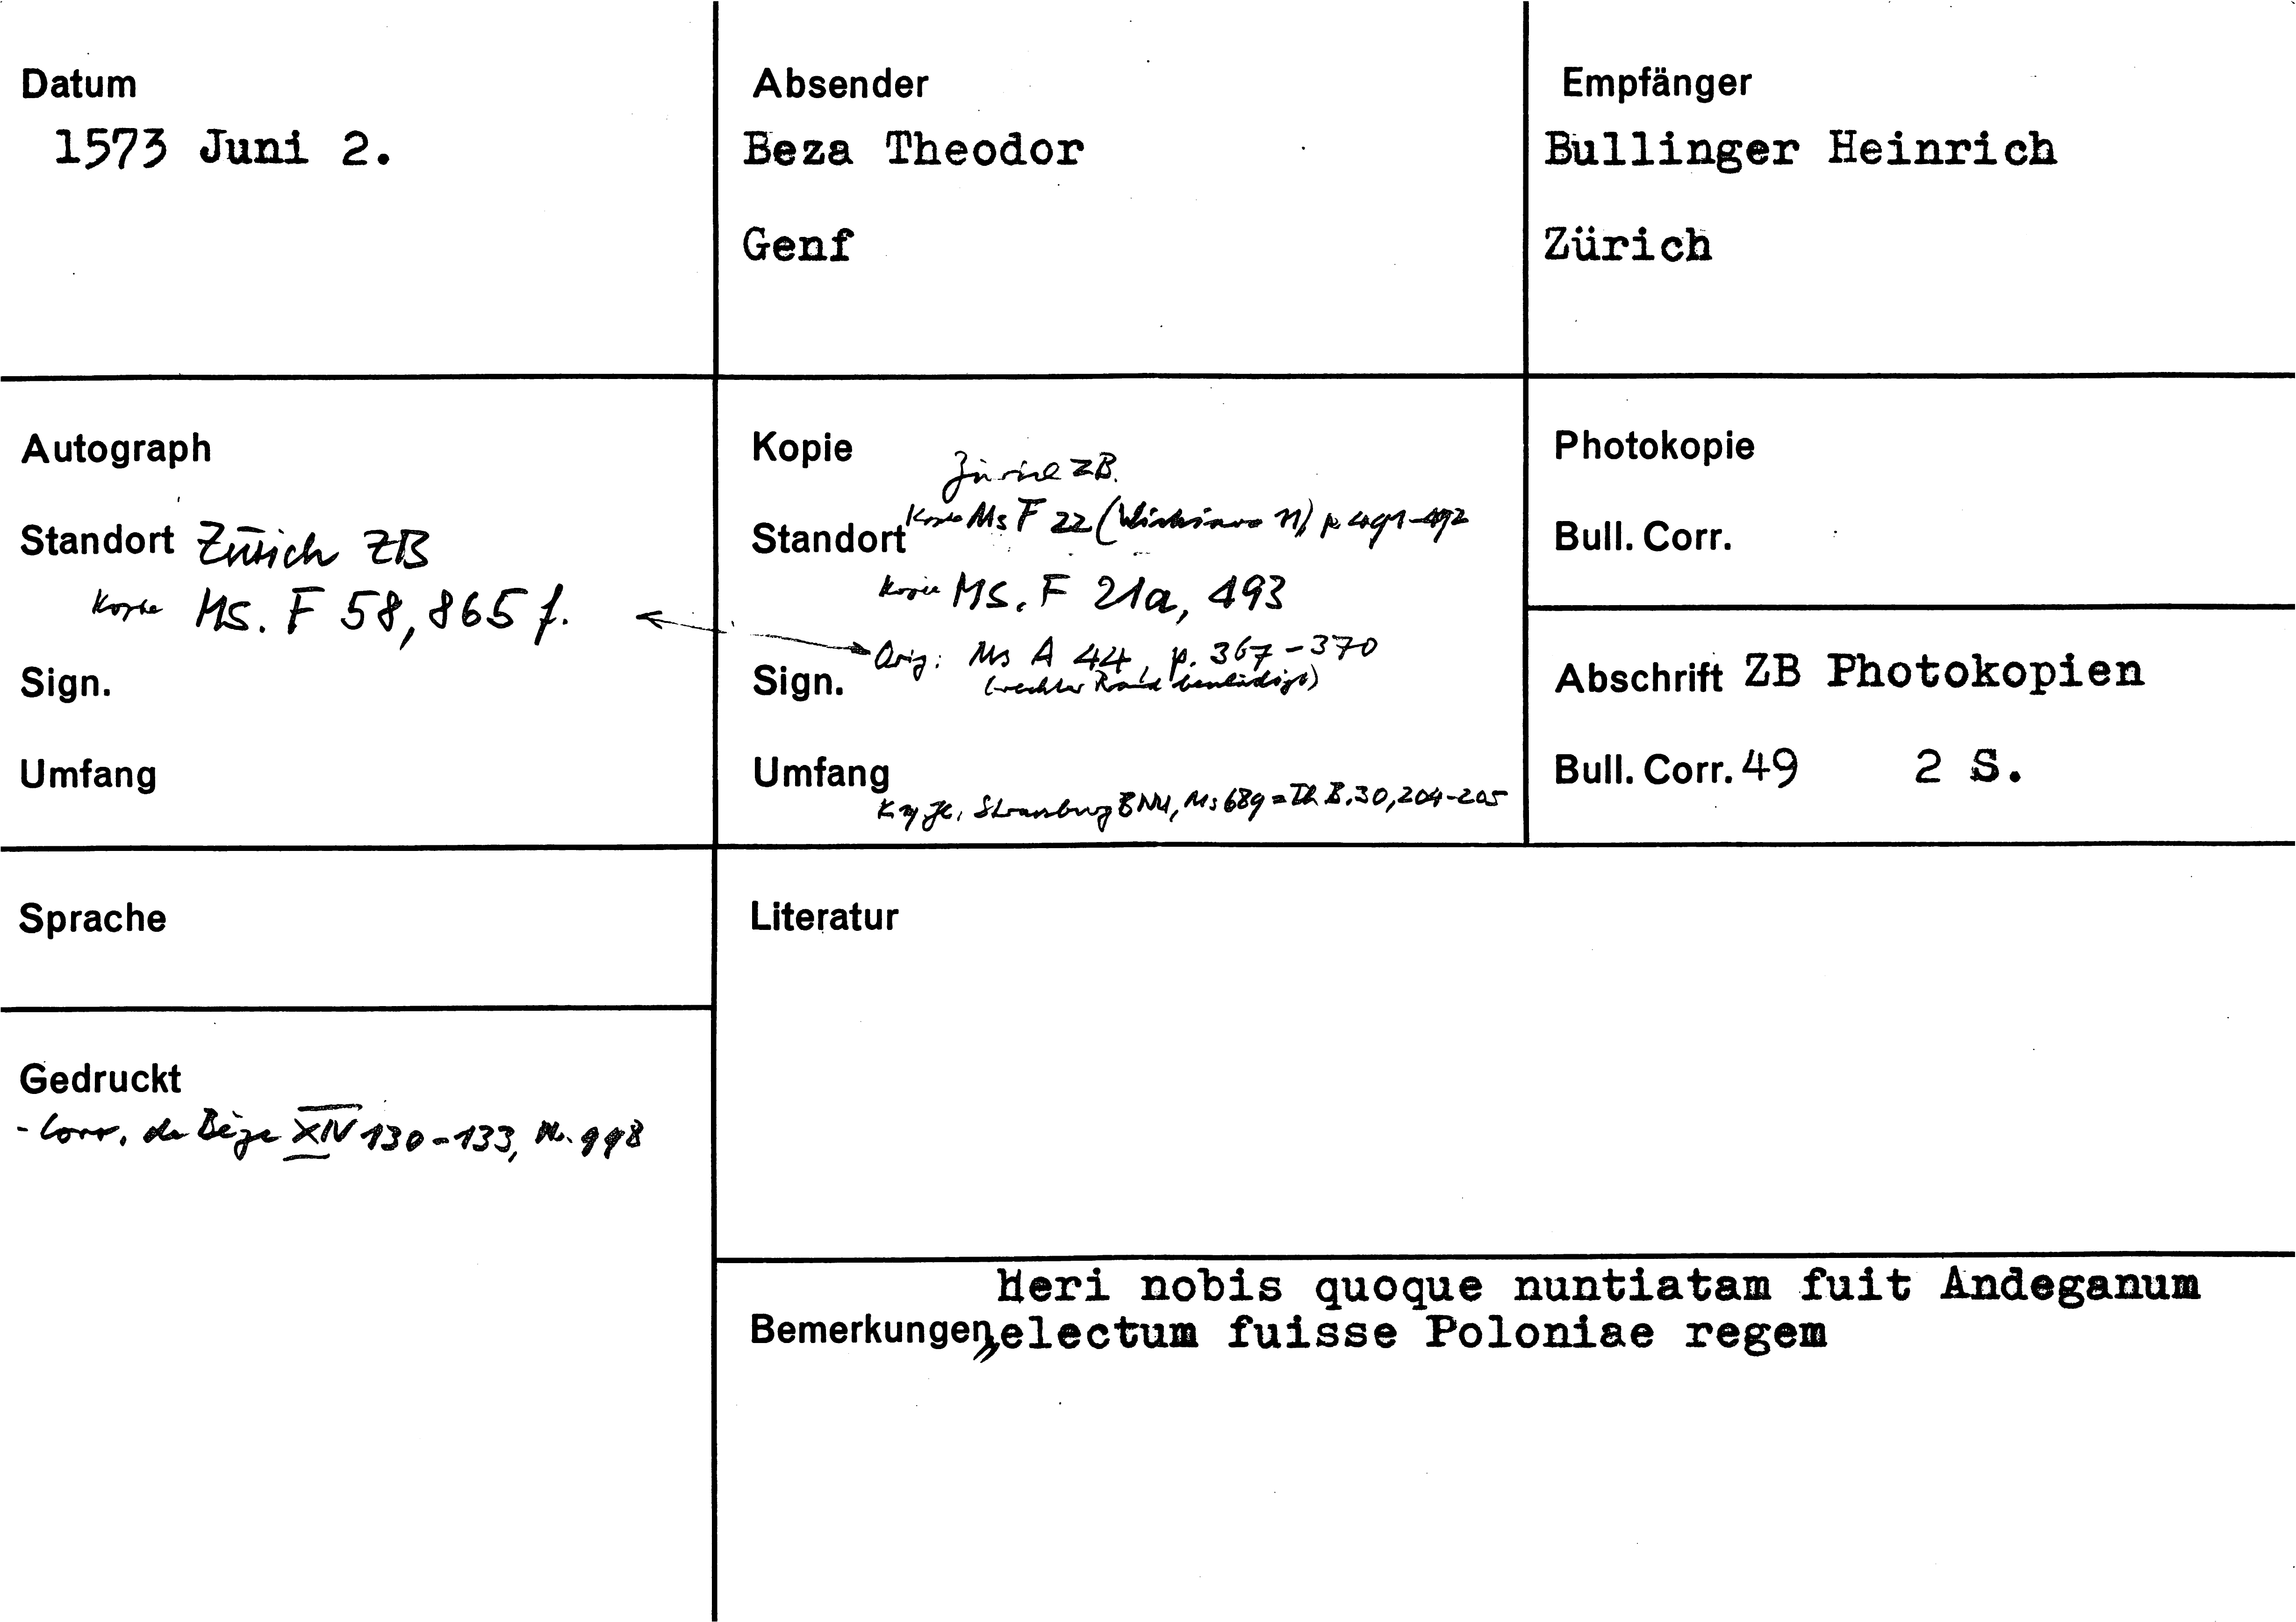 Datum
1573 Juni 2.
Absender
Beza Theodor
Genf
Empfänger
Bullinger Heinrich
Zürich
Autograph
Standort Zürich ZB
Kopie Ms. F 58, 865 f.
Sign.
Umfang
Kopie
Zürich ZB.
Standort Kopie Ms F 22 (Wickiana 11) p 491-492
Kopie MS. F 21a, 493
Sign. Orig: Ms A 44, p. 367-370
(rechter Rand beschädigt)
Umfang
Strassburg BNU, Ms 689 = Th B. 30, 204-205
Photokopie
Bull. Corr.
Abschrift ZB Photokopien
Bull. Corr. 49 2 S.
Sprache
Literatur
Gedruckt
- Corr. de Bèze XIV 130-133, Nr. 998
Heri nobis quoque nuntiatam fuit Andeganum
Bemerkungen electum fuisse Poloniae regem